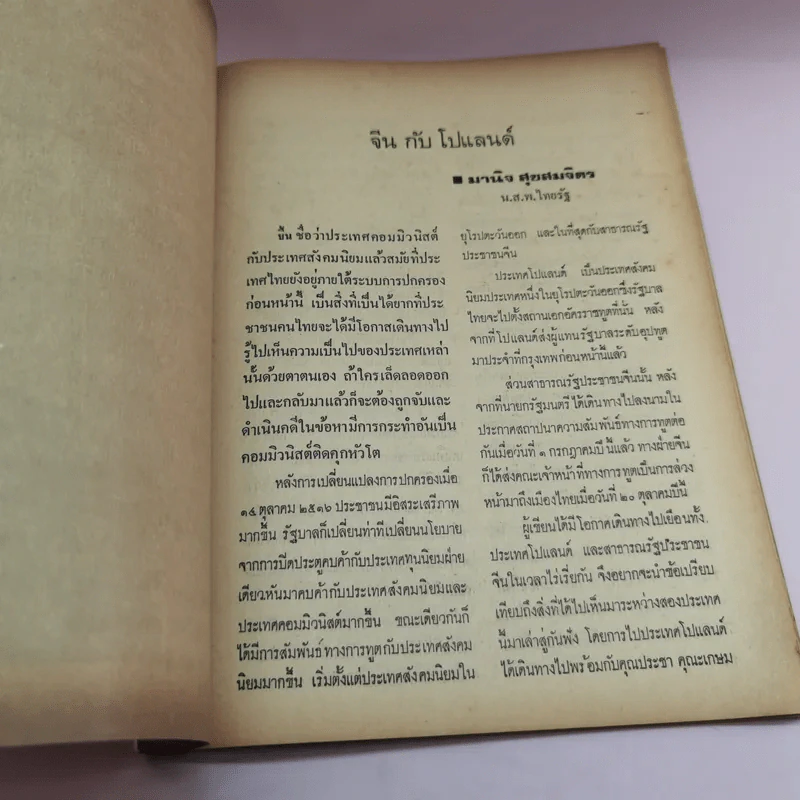 จีน กับ โปแลนด์
■ มานิจ สุขสมจิตร
น.ส.พ.ไทยรัฐ
ขึ้น ชื่อว่าประเทศคอมมิวนิสต์
กับประเทศสังคมนิยมแล้วสมัยที่ประ
เทศไทยยังอยู่ภายใต้ระบบการปกครอง
ก่อนหน้านี้ เป็นสิ่งที่เป็นได้ยากที่ประ
ชาชนคนไทยจะได้มีโอกาสเดินทางไป
รู้ไปเห็นความเป็นไปของประเทศเหล่า
นั้นด้วยตาตนเอง ถ้าใครเล็ดลอดออก
ไปและกลับมาแล้วก็จะต้องถูกจับและ
ดำเนินคดีในข้อหามีการกระทำอันเป็น
คอมมิวนิสต์ติดคุกหัวโต
หลังการเปลี่ยนแปลงการปกครองเมื่อ
๑๔ ตุลาคม ๒๕๑๖ ประชาชนมีอิสระเสรีภาพ
มากขึ้น รัฐบาลก็เปลี่ยนท่าทีเปลี่ยนนโยบาย
จากการปิดประตูคบค้ากับประเทศทุนนิยมฝ่าย
เดียวหันมาคบค้ากับประเทศสังคมนิยมและ
ประเทศคอมมิวนิสต์มากขึ้น ขณะเดียวกันก็
ได้มีการสัมพันธ์ทางการทูตกับประเทศสังคม
นิยมมากขึ้น เริ่มตั้งแต่ประเทศสังคมนิยมใน
ยุโรปตะวันออก และในที่สุดกับสาธารณรัฐ
ประชาชนจีน
ประเทศโปแลนด์ เป็นประเทศสังคม
นิยมประเทศหนึ่งในยุโรปตะวันออกซึ่งรัฐบาล
ไทยจะไปตั้งสถานเอกอัครราชทูตที่นั้น หลัง
จากที่โปแลนด์ส่งผู้แทนรัฐบาลระดับอุปทูต
มาประจำที่กรุงเทพก่อนหน้านี้แล้ว
ส่วนสาธารณรัฐประชาชนจีนนั้น หลัง
จากที่นายกรัฐมนตรี ได้เดินทางไปลงนามใน
ประกาศสถาปนาความสัมพันธ์ทางการทูตต่อ
กันเมื่อวันที่ ๑ กรกฎาคมปีนี้แล้ว ทางฝ่ายจีน
ก็ได้ส่งคณะเจ้าหน้าที่ทางการทูตเป็นการล่วง
หน้ามาถึงเมืองไทยเมื่อวันที่ ๒๐ ตุลาคมปีนี้
ผู้เขียนได้มีโอกาศเดินทางไปเยือนทั้ง
ประเทศโปแลนด์ และสาธารณรัฐประชาชน
จีนในเวลาไร่เรี่ยกัน จึงอยากจะนำข้อเปรียบ
เทียบถึงสิ่งที่ได้ไปเห็นมาระหว่างสองประเทศ
นี้มาเล่าสู่กันฟัง โดยการไปประเทศโปแลนด์
ได้เดินทางไปพร้อมกับคุณประชา คุณะเกษม